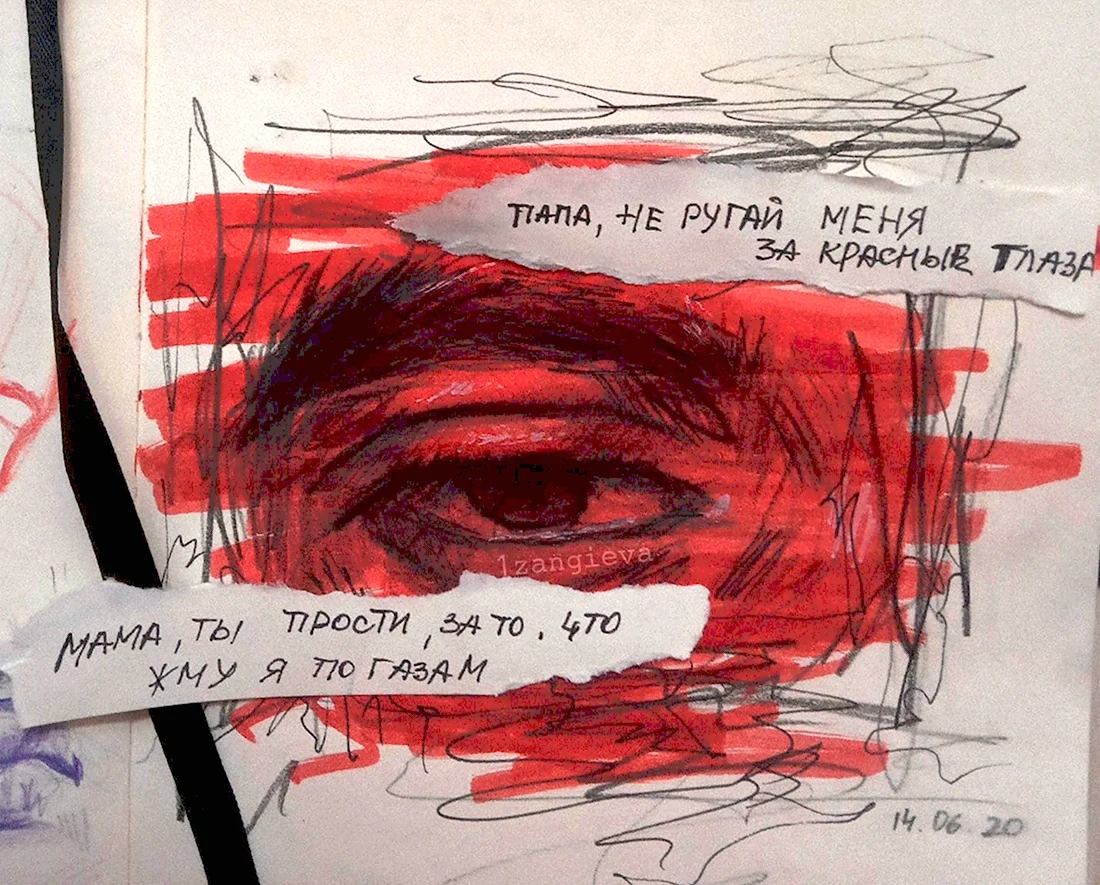 ПАПА, НЕ РУГАЙ МЕНЯ
ЗА КРАСНЫЕ ГЛАЗА
1zangieva
МАМА, ТЫ ПРОСТИ, ЗА ТО, ЧТО
ЖМУ Я ПО ГАЗАМ
14.06.20